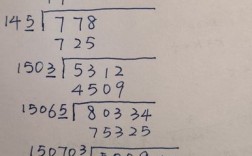 145 778
725
1503 5312
4509
15065 80334
75325
150703